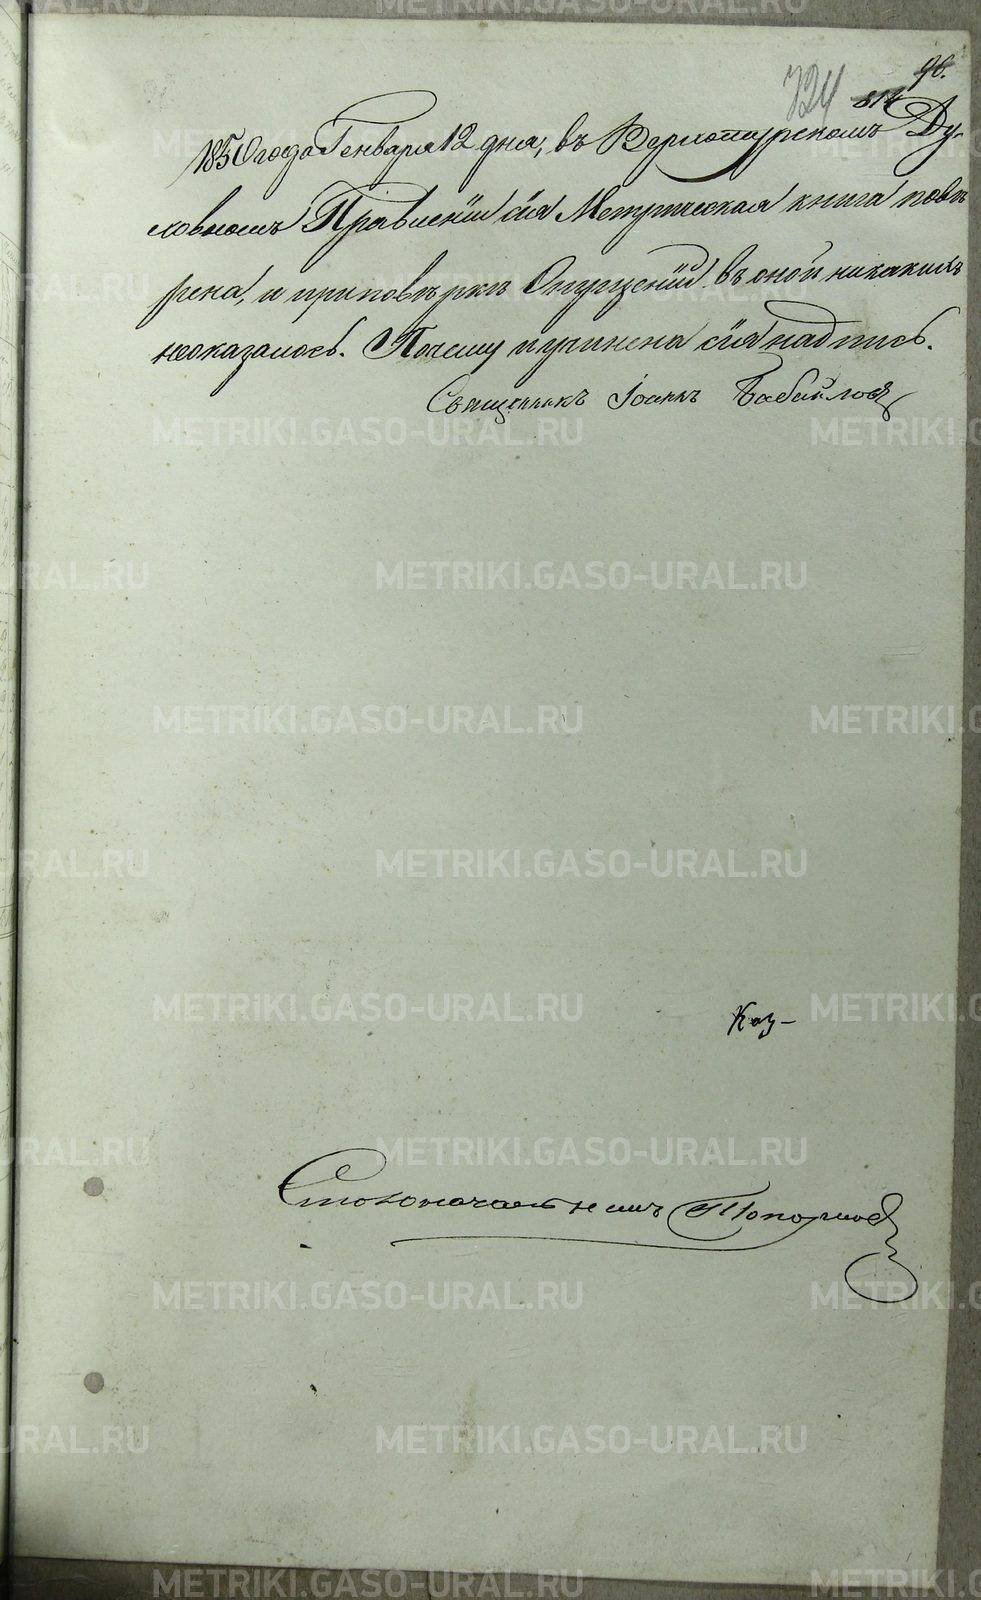 90.
724
814
1850 года Генваря 12 дня, въ Верхотурскомъ Ду-
ховномъ Правленіи сія Метрическая книга повѣ
рена, и приповѣркѣ Опущеній въ оной никакихъ
неоказалось. Почему и учинена сія надпись.
Священникъ Іоаннъ
Каз-
Столоначальникъ Топорковъ